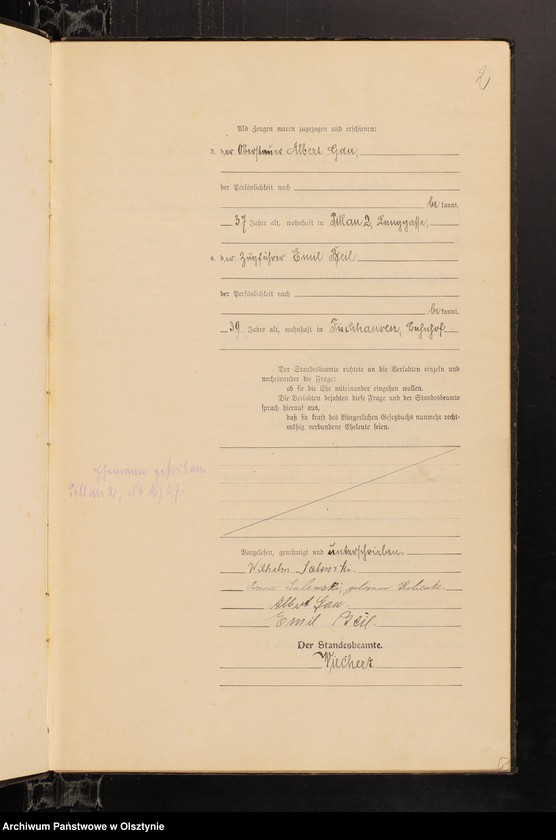 2
Als Zeugen waren zugezogen und erschienen:
der Albert Gau,
der Persönlichkeit nach
be kannt,
37 Jahre alt, wohnhaft in Pillau 2, Langgasse,
4. der Zugführer Emil Beil
der Persönlichkeit nach
be kannt,
39 Jahre alt, wohnhaft in Fischhausen, Bahnhof.
Der Standesbeamte richtete an die Verlobten einzeln und
nacheinander die Frage:
ob sie die Ehe miteinander eingehen wollen.
Die Verlobten bejahten diese Frage und der Standesbeamte
sprach hierauf aus,
daß sie kraft des Bürgerlichen Gesetzbuchs nunmehr recht-
mäßig verbundene Eheleute seien.
Ehemann gestorben
Pillau 2,
Vorgelesen, genehmigt und unterschrieben.
Wilhelm
Anna geborene
Albert Gau.
Emil Beil.
Der Standesbeamte.
Wiechert
Archiwum Państwowe w Olsztynie